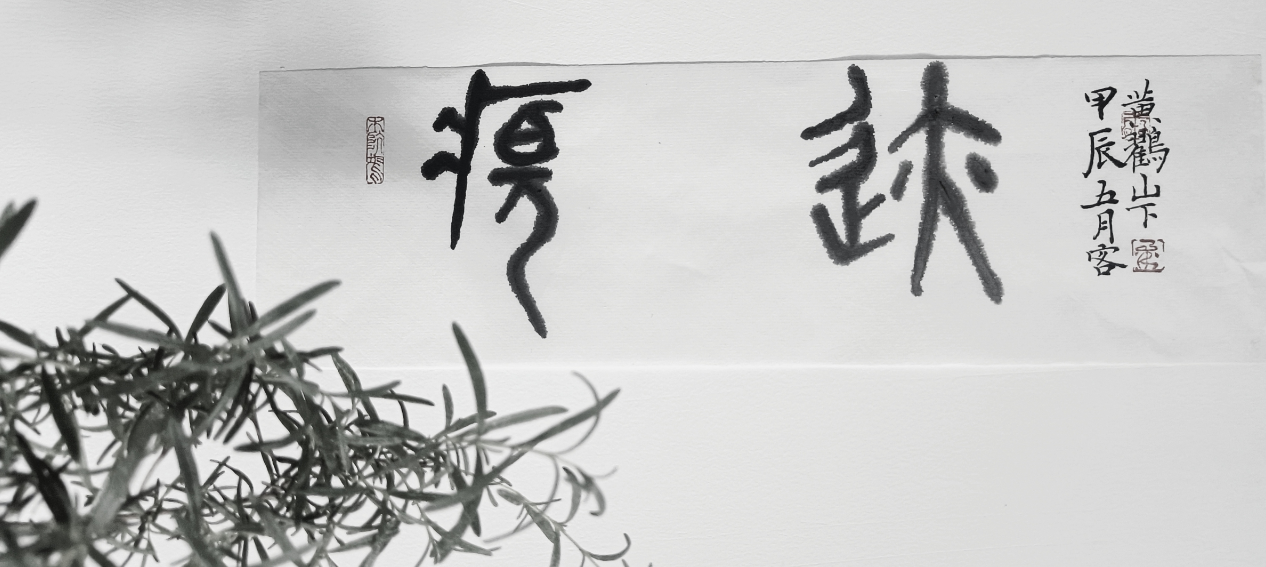 痕迹
甲辰五月客
黄鶴山下